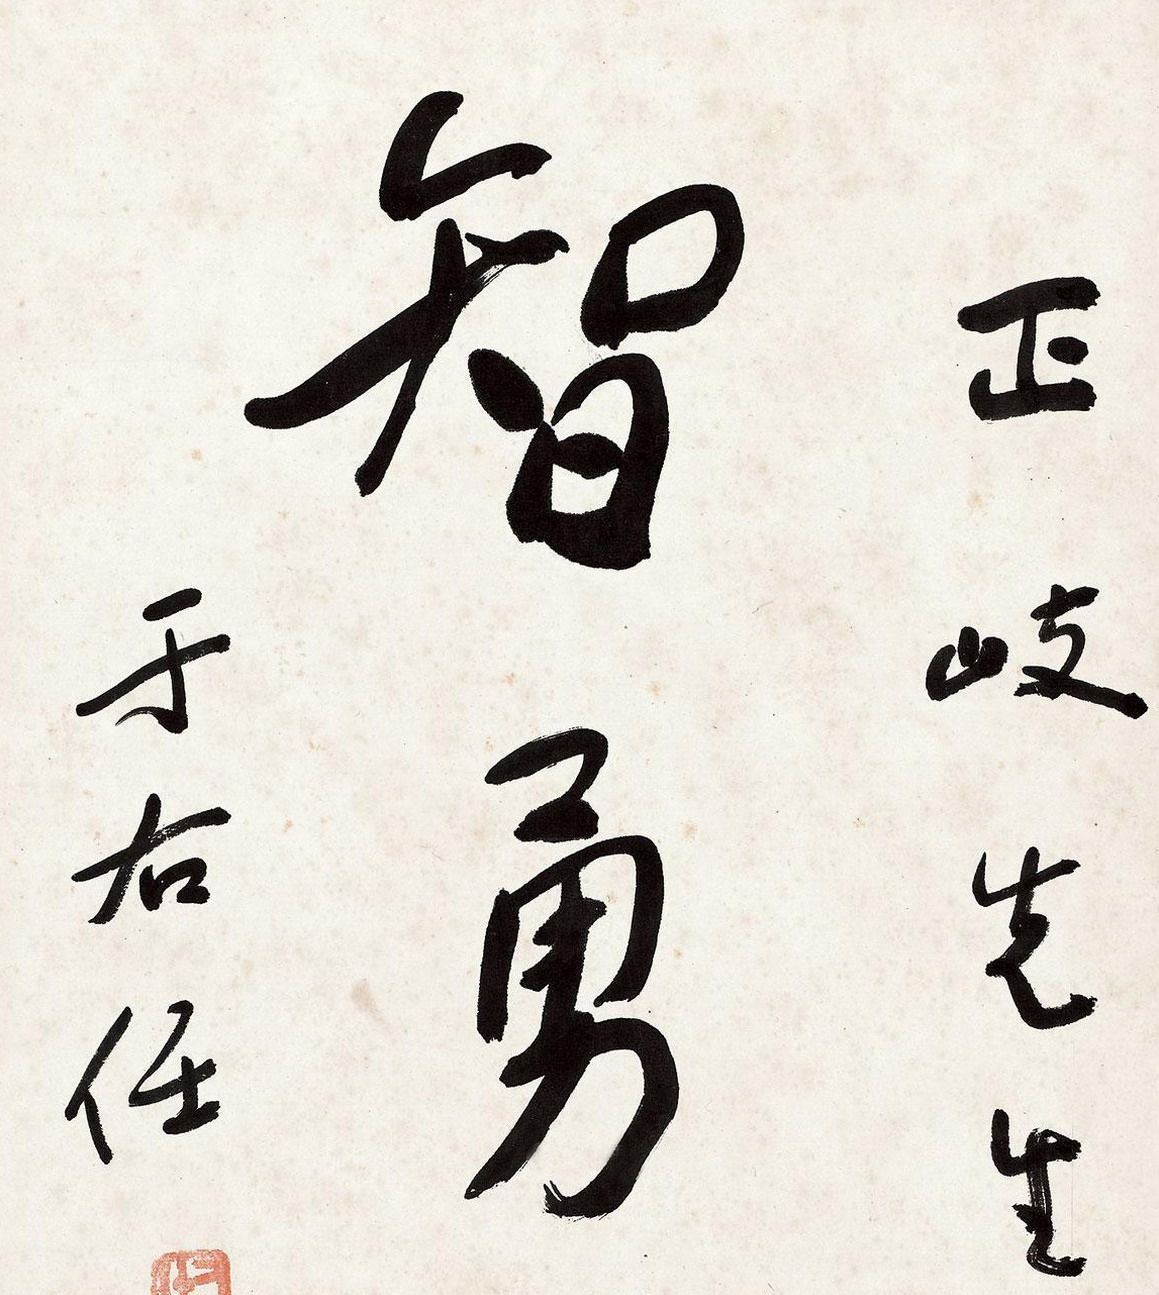 正岐先生
智勇
于右任